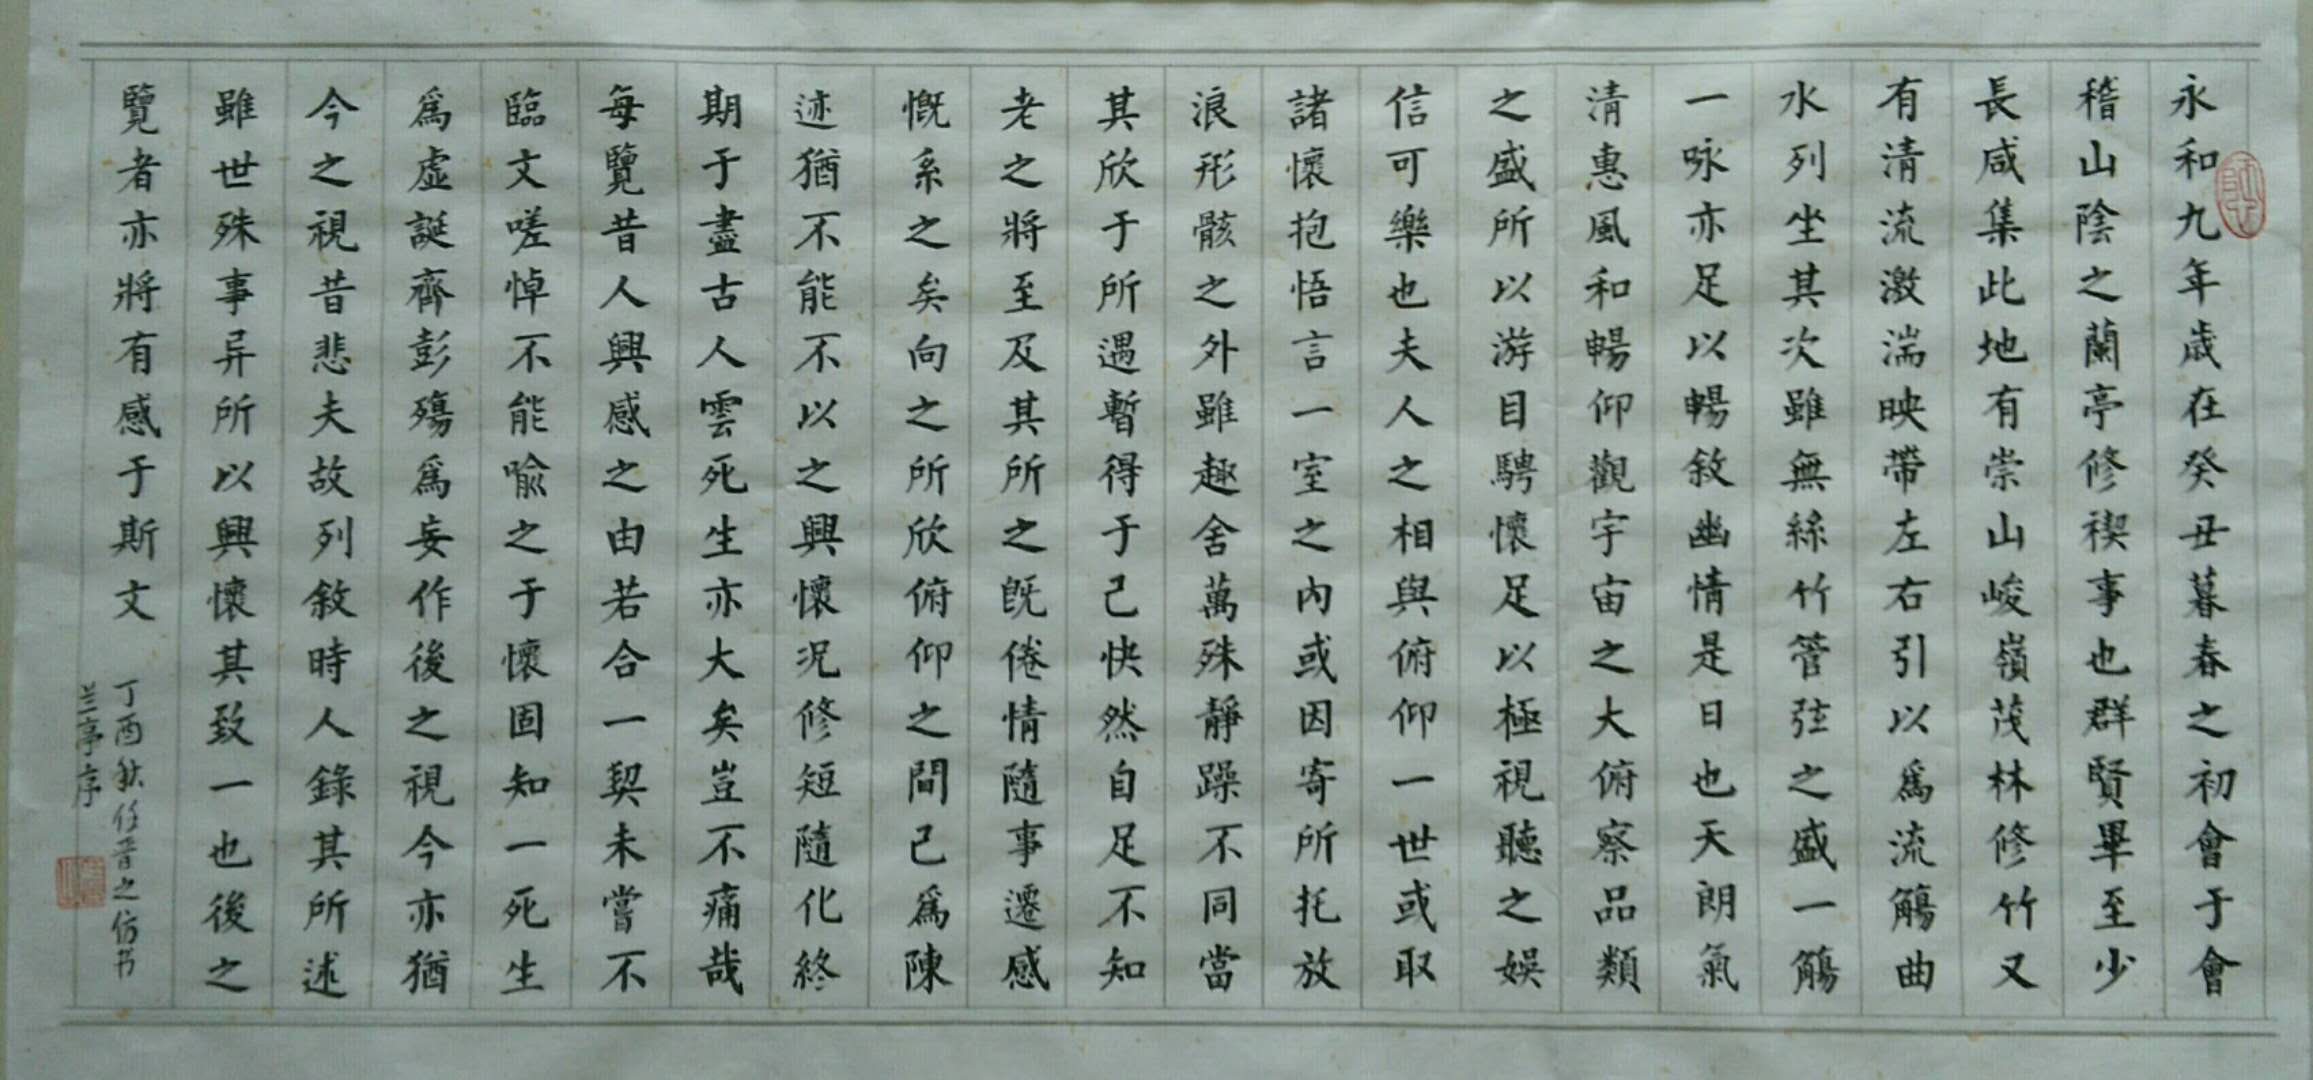 永和九年歲在癸丑暮春之初會于會
稽山陰之蘭亭修禊事也群賢畢至少
長咸集此地有崇山峻嶺茂林修竹又
有清流激湍映帶左右引以爲流觴曲
水列坐其次雖無絲竹管弦之盛一觴
一咏亦足以暢敘幽情是日也天朗氣
清惠風和暢仰觀宇宙之大俯察品類
之盛所以游目騁懷足以極視聽之娛
信可樂也夫人之相與俯仰一世或取
諸懷抱悟言一室之內或因寄所托放
浪形骸之外雖趣舍萬殊靜躁不同當
其欣于所遇暫得于己快然自足不知
老之將至及其所之既倦情隨事遷感
慨系之矣向之所欣俯仰之間已爲陳
迹猶不能不以之興懷況修短隨化終
期于盡古人雲死生亦大矣豈不痛哉
每覽昔人興感之由若合一契未嘗不
臨文嗟悼不能喻之于懷固知一死生
爲虛誕齊彭殤爲妄作後之視今亦猶
今之視昔悲夫故列敘時人錄其所述
雖世殊事异所以興懷其致一也後之
覽者亦將有感于斯文
丁酉秋任晋之仿书
兰亭序